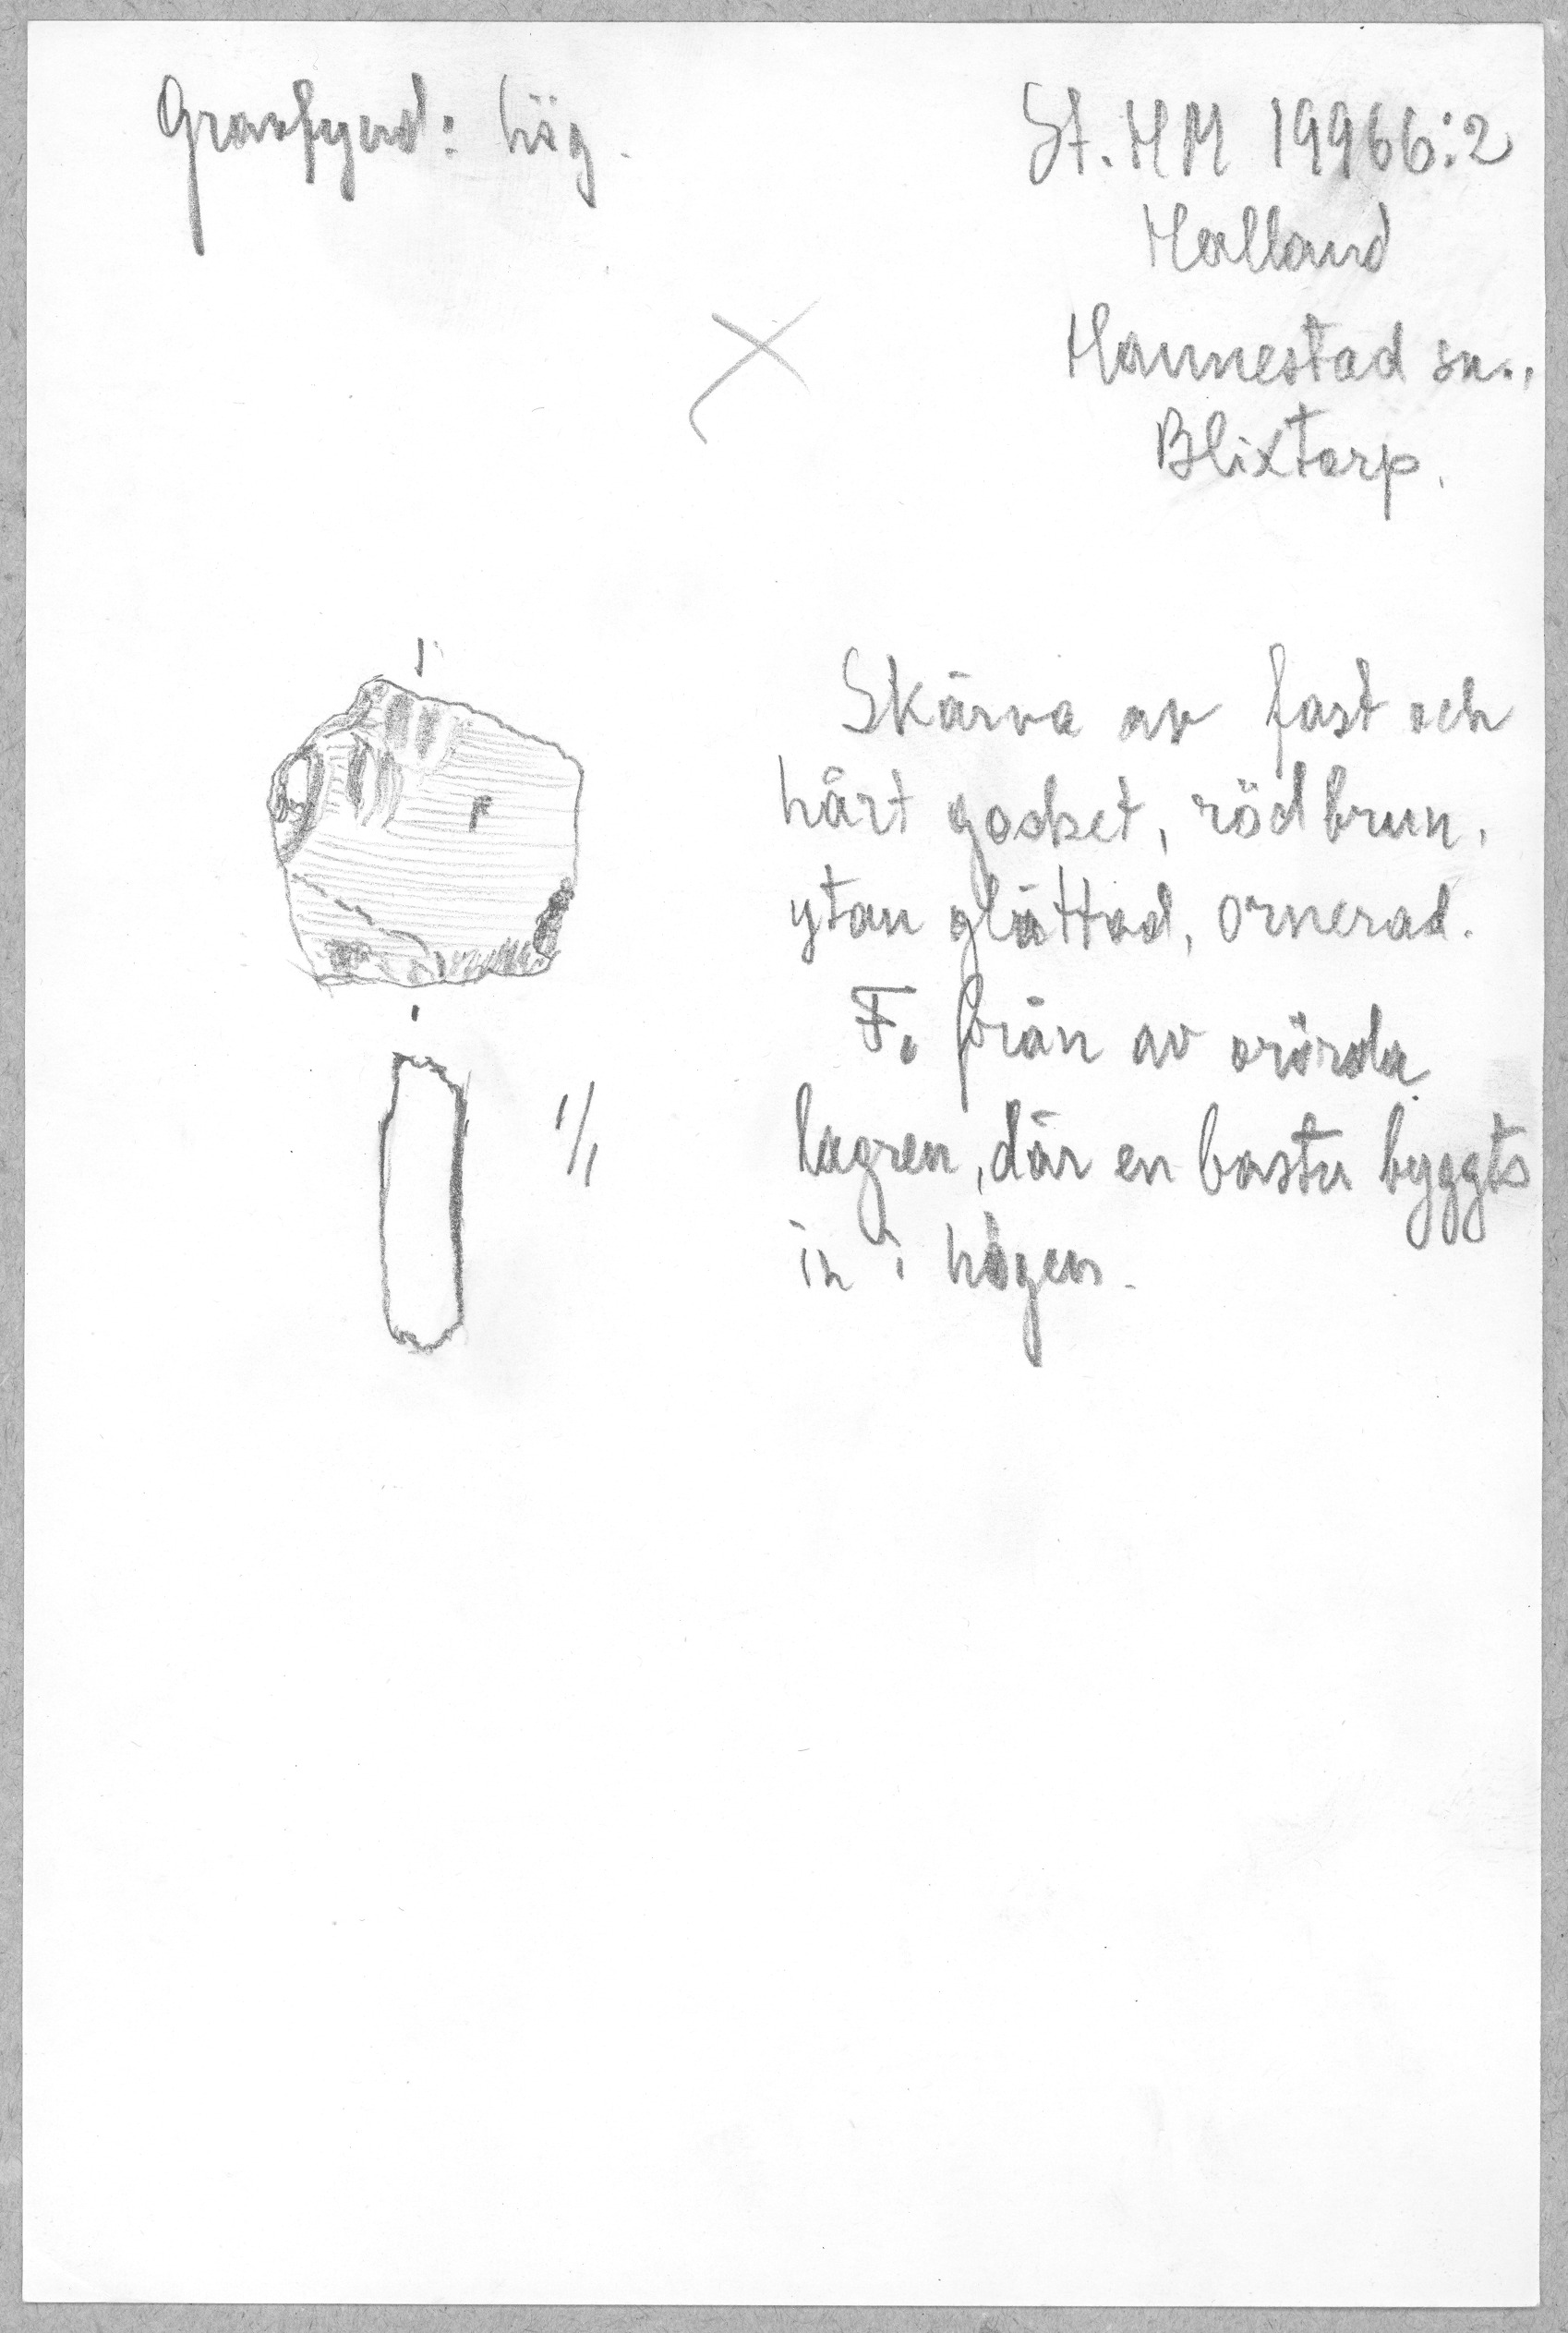 Gravfynd: hög.
St. HM 19966:2
Halland
Hannestad sn.,
Blixtorp.
Skärva av fast och
hårt godset, rödbrun,
ytan glättad, ornerad.
F. från av orörda
lagren, där en bastu byggts
in i högen.
1/1